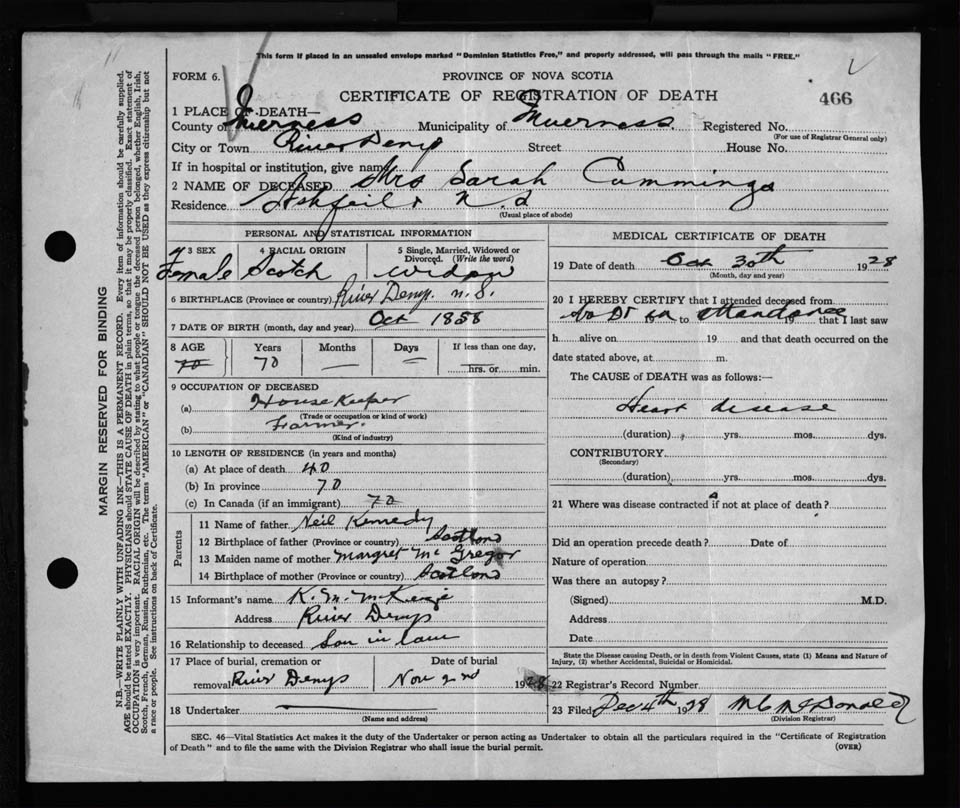 This form if placed in an unsealed envelope marked "Dominion Statistics Free," and properly addressed, will pass through the mails "FREE."
FORM 6.
PROVINCE OF NOVA SCOTIA
CERTIFICATE OF REGISTRATION OF DEATH
466
1 PLACE OF DEATH—
County of Inverness Municipality of Inverness Registered No.
(For use of Registrar General only)
City or Town River Denys Street House No.
If in hospital or institution, give name
2 NAME OF DECEASED Mrs Sarah Cummings
Residence N.S
(Usual place of abode)
PERSONAL AND STATISTICAL INFORMATION
3 SEX Female
4 RACIAL ORIGIN Scotch
5 Single, Married, Widowed or Divorced. (Write the word) widow
6 BIRTHPLACE (Province or country) River Denys. N.S.
7 DATE OF BIRTH (month, day and year) Oct 1858
8 AGE Years Months Days If less than one day,
70 70 — — hrs. or min.
9 OCCUPATION OF DECEASED
(a) House Keeper
(Trade or occupation or kind of work)
(b) Farmer.
(Kind of industry)
10 LENGTH OF RESIDENCE (in years and months)
(a) At place of death 40
(b) In province 70
(c) In Canada (if an immigrant) 70
Parents
11 Name of father Neil Kennedy
12 Birthplace of father (Province or country) Scotland
13 Maiden name of mother Margret Mc Gregor
14 Birthplace of mother (Province or country) Scotland
15 Informant's name K. M. McKenzie
Address River Denys
16 Relationship to deceased Son in law
17 Place of burial, cremation or removal River Denys
Date of burial Nov 2nd 1928
18 Undertaker
(Name and address)
MEDICAL CERTIFICATE OF DEATH
19 Date of death Oct 30th 1928
(Month, day and year)
20 I HEREBY CERTIFY that I attended deceased from
No Dr in attendance 19 to 19 that I last saw
h alive on 19 and that death occurred on the
date stated above, at m.
The CAUSE of DEATH was as follows:—
Heart disease
(duration) yrs. mos. dys.
CONTRIBUTORY
(Secondary)
(duration) yrs. mos. dys.
21 Where was disease contracted if not at place of death?
Did an operation precede death? Date of
Nature of operation
Was there an autopsy?
(Signed) M.D.
Address
Date
State the Disease causing Death, or in death from Violent Causes, state (1) Means and Nature of
Injury, (2) whether Accidental, Suicidal or Homicidal.
22 Registrar's Record Number
23 Filed Dec 4th 1928 M C McDonald
(Division Registrar)
SEC. 46—Vital Statistics Act makes it the duty of the Undertaker or person acting as Undertaker to obtain all the particulars required in the "Certificate of Registration
of Death" and to file the same with the Division Registrar who shall issue the burial permit.
(OVER)
MARGIN RESERVED FOR BINDING
N.B.—WRITE PLAINLY WITH UNFADING INK—THIS IS A PERMANENT RECORD. Every item of information should be carefully supplied.
AGE should be stated EXACTLY. PHYSICIANS should STATE CAUSE OF DEATH in plain terms, so that it may be properly classified. Exact statement of
OCCUPATION is very important. RACIAL ORIGIN will be described by stating to what people or tongue the deceased person belonged, whether English, Irish,
Scotch, French, German, Russian, Ruthenian, etc. The terms "AMERICAN" or "CANADIAN" SHOULD NOT BE USED as they express citizenship but not
a race or people. See instructions on back of Certificate.